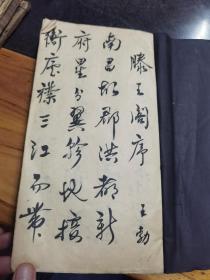 滕王阁序
王勃
南昌故郡洪都新
府星分翼轸地接
衡庐襟三江而带